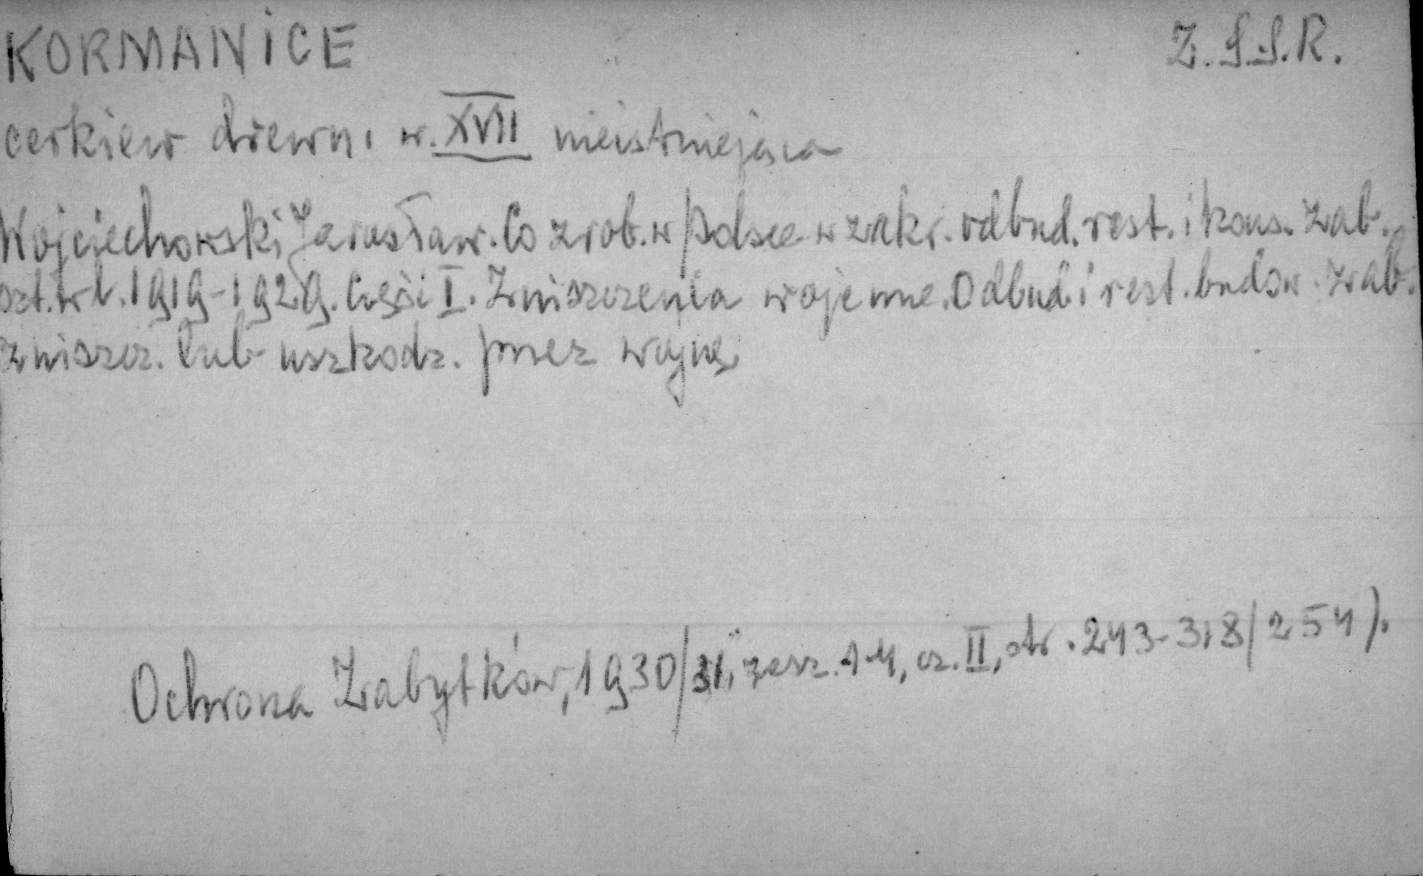 KORMANICE Z.S.S.R.
cerkiew drewn. w. XVII nieistniejąca
Wojciechowski Jarosław. Co zrob. w Polsce w zakr. odbud. rest. i kons. zab.
szt. w l. 1919-1929. Część I. Zniszczenia wojenne. Odbud. i rest. budow. zab.
zniszcz. lub uszkodz. przez wojnę
Ochrona Zabytków, 1930/31, zesz. 1-4, cz. II, str. 243-318/254).